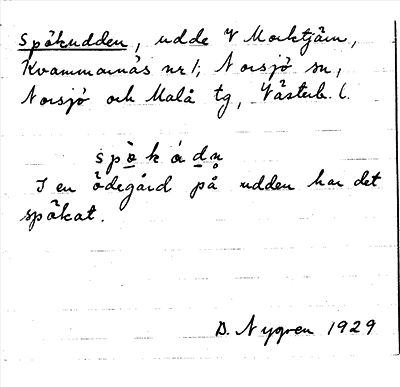 Spökudden, udde V Morktjärn,
Kvammarnäs nr 1, Norsjö sn,
Norsjö och Malå tg, Västerb. l.
spò̱k ád̲n̥
I en ödegård på udden har det
spökat.
D. Nygren 1929